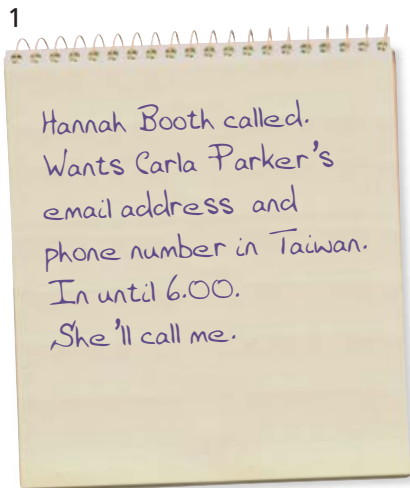 1
Hannah Booth called.
Wants Carla Parker's
email address and
phone number in Taiwan.
In until 6.00.
She'll call me.